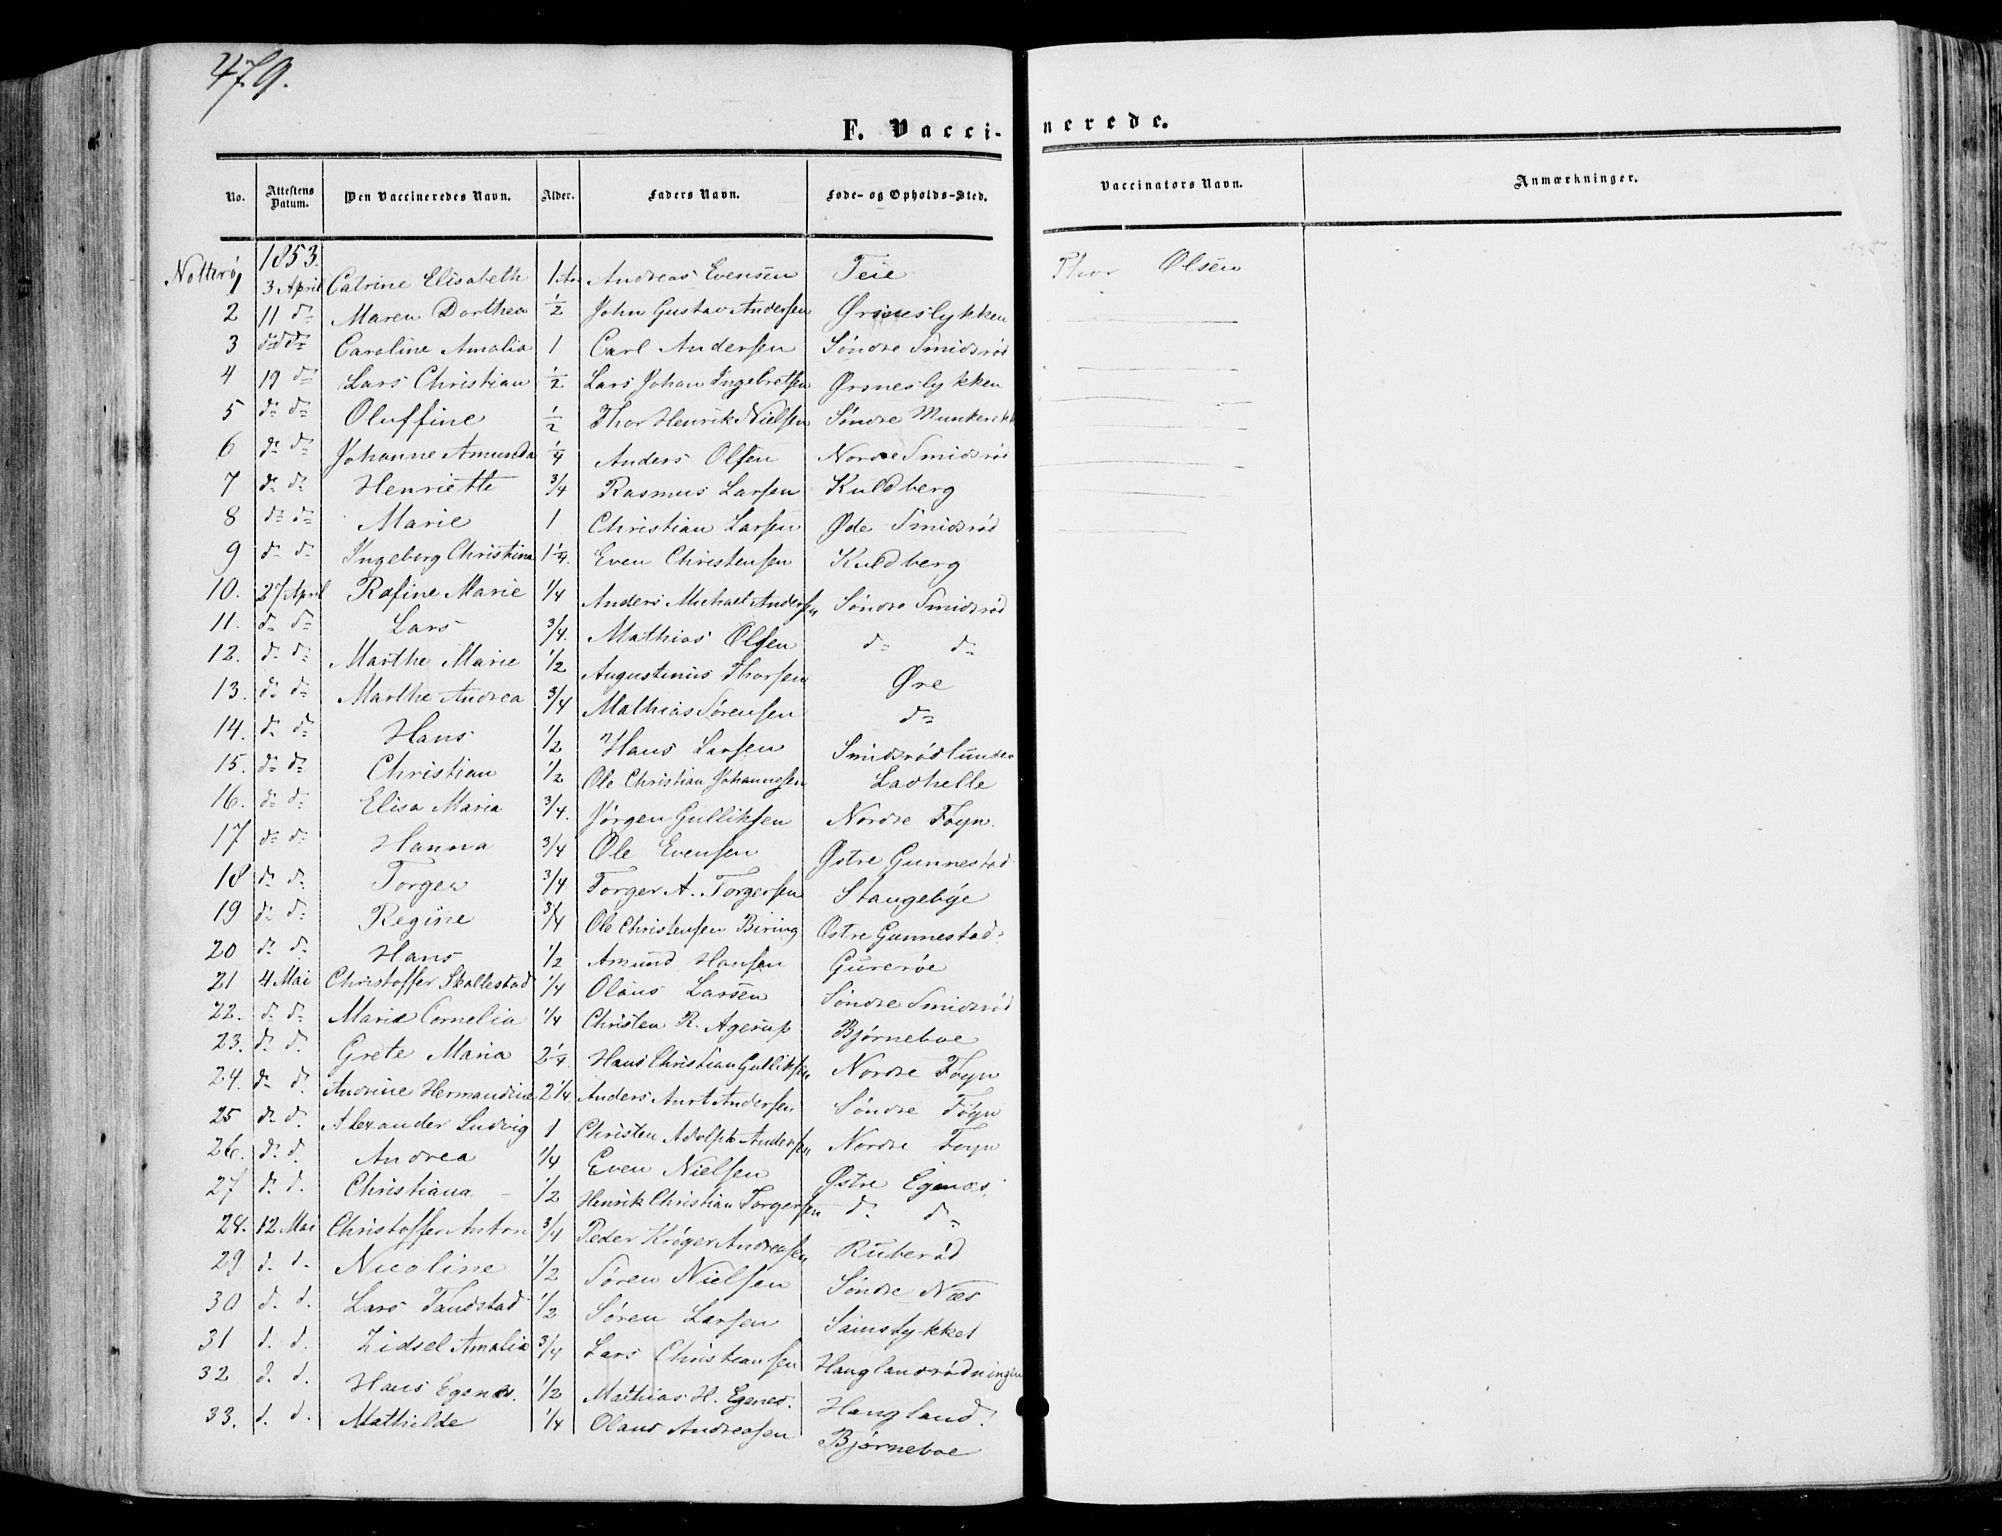 479.
F. Vaccinerede.
No. Attestens Datum. Den Vaccineredes Navn. Alder. Faders Navn. Føde- og Opholds-Sted. Vaccinators Navn. Anmærkninger.
1853.
Nøtterø 1 3 April Catrine Elisabeth 1 Andreas Evensen Teie Thor Olsen
2 11 do Maren Dorthea 1/2 John Gustav Andersen Ørsneslykken
3 do do Caroline Amalia 1 Carl Andersen Søndre Smidsrød
4 19 do Lars Christian 1/2 Lars Johan Ingebretsen Ørsneslykken
5 do do Oluffine 1/2 Thor Henrik Nielsen Søndre
6 do do Johanne Amunda 1/4 Anders Olsen Nordre Smidsrød
7 do do Henriette 3/4 Rasmus Larsen Kuldberg
8 do do Marie 1 Christian Larsen Øde Smidsrød
9 do do Ingeborg Christina 1 1/4. Even Christensen Kuldberg
10. 27 April Rafine Marie 1/4 Anders Michael Andersen Søndre Smidsrød
11. do do Lars 3/4. Mathias Olsen do do
12. do do Marthe Marie 1/2 Augustinus Thorsen Øre
13. do do Marthe Andrea 3/4 Mathias Sørensen do
14. do do Hans 1/2 Hans Larsen Smidsrødlunden
15. do do Christian 1/2 Ole Christian Johannssen Ladhelle
16. do do Elisa Maria 3/4. Jørgen Gulliksen Nordre Føyn.
17 do do Hanna 3/4 Ole Evensen Østre Gunnestad
18 do do Torger 3/4 Torger A. Torgersen Stangebye
19 do do Regine 3/4 Ole Christensen Biring Østre Gunnestad.
20 do do Hans 1/2 Amund Hansen
21 4 Mai Christoffer Skallestad 1/4 Olaus Larsen Søndre Smidsrød
22. do do Marie Cornelia 1/4 Christen R. Agerup Bjørneboe
23. do d. Grete Maria 2 1/4. Hans Christian Gulliksen Nordre Føyn
24. do d. Andrine Hermandine 2 1/4. Anders Andersen Søndre Føyn
25 do d. Alexander Ludvig 1 Christen Adolph Andersen Nordre Foyn
26. do d. Andrea 1/4 Even Nielsen Østre Egenæs.
27 do d. Christiana 1/2 Henrik Christian Torgersen d. do
28. 12 Mai Christoffer Anton 3/4 Peder Krøger Andreasen
29 d. d. Nicoline 1/2 Søren Nielsen Søndre Næs
30 d. d. Lars 1/2 Søren Larsen
31 d. d. Zidsel Amalia 3/4 Lars Christiansen Hauglandsrødningen
32 d. d. Hans Egenæs. 1/2 Mathias H. Egenes. Haugland.
33. d. d. Mathilde 1/4 Olaus Andreasen Bjørneboe